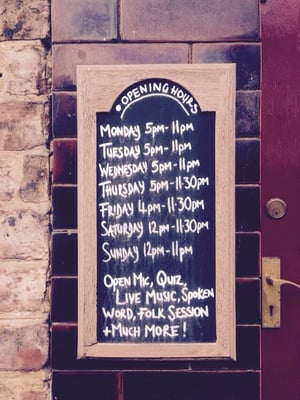 OPENING HOURS
MONDAY 5PM-11PM
TUESDAY 5PM-11PM
WEDNESDAY 5PM-11PM
THURSDAY 5PM-11·30PM
FRIDAY 4PM-11·30PM
SATURDAY 12PM-11·30PM
SUNDAY 12PM-11PM
OPEN MIC, QUIZ,
LIVE MUSIC, SPOKEN
WORD, FOLK SESSION
+MUCH MORE!